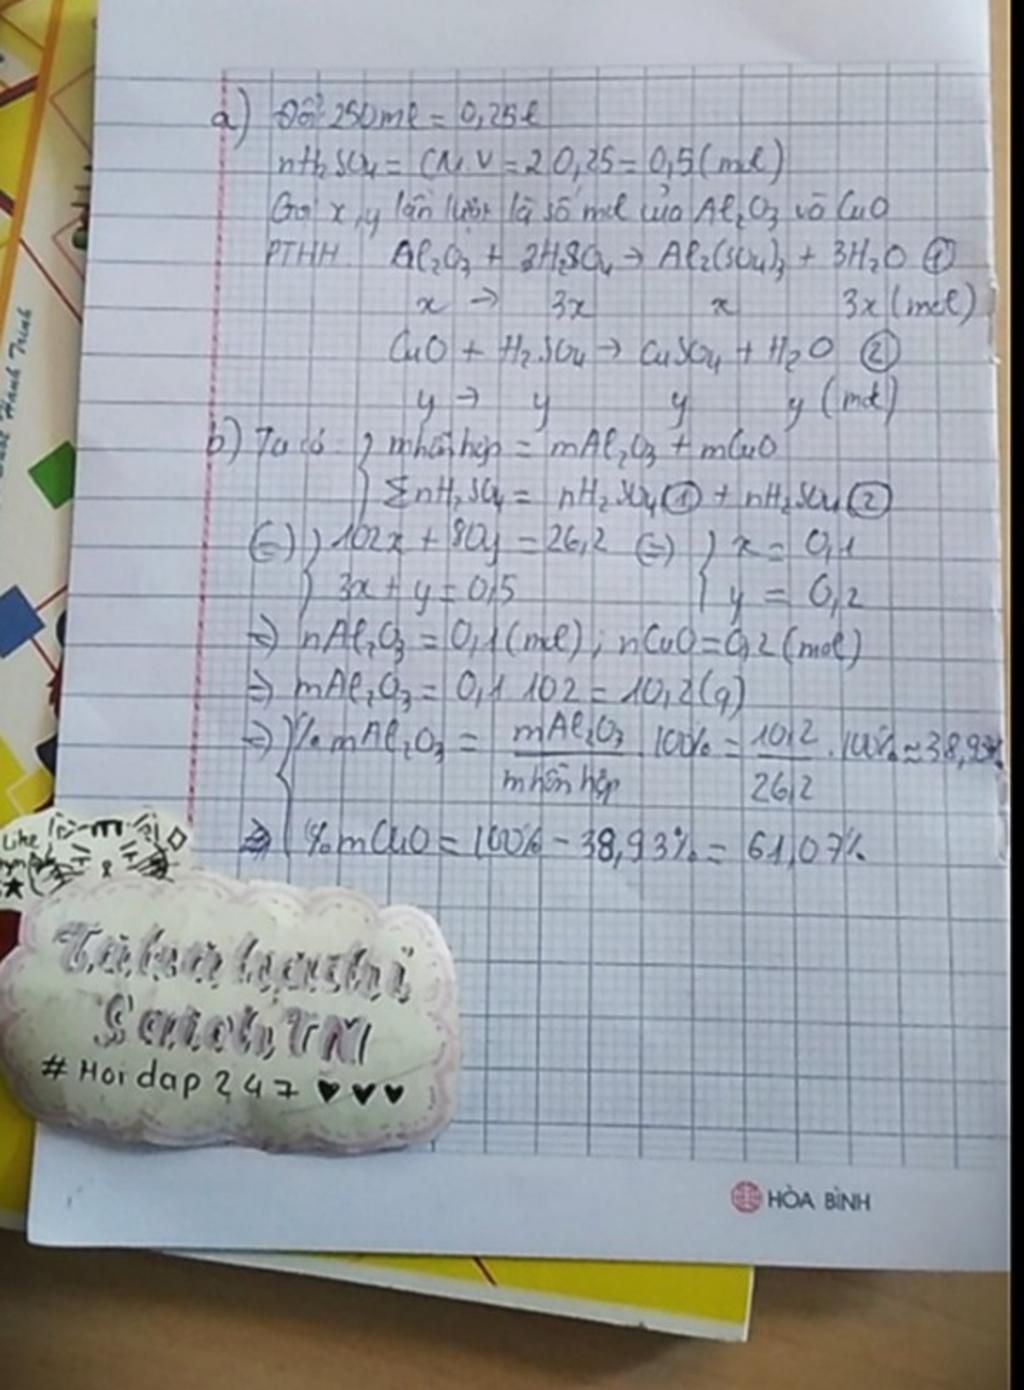 a) Đổi 250ml = 0,25l
nH₂SO₄ = CM.V = 2.0,25 = 0,5 (mol)
Gọi x, y lần lượt là số mol của Al₂O₃ và CuO
PTHH Al₂O₃ + 3H₂SO₄ → Al₂(SO₄)₃ + 3H₂O ①
x → 3x x 3x (mol)
CuO + H₂SO₄ → CuSO₄ + H₂O ②
y → y y y (mol)
b) Ta có { mhỗn hợp = mAl₂O₃ + mCuO
ΣnH₂SO₄ = nH₂SO₄ ① + nH₂SO₄ ②
(=) { 102x + 80y = 26,2 (=) { x = 0,1
3x + y = 0,5 y = 0,2
=> nAl₂O₃ = 0,1 (mol) ; nCuO = 0,2 (mol)
=> mAl₂O₃ = 0,1.102 = 10,2 (g)
=> { %mAl₂O₃ = mAl₂O₃ / mhỗn hợp .100% = 10,2 / 26,2 .100% ≈ 38,93%
=> %mCuO = 100% - 38,93% = 61,07%
Like
# Hoidap247 ♥♥♥
HÒA BÌNH
Hành Trình